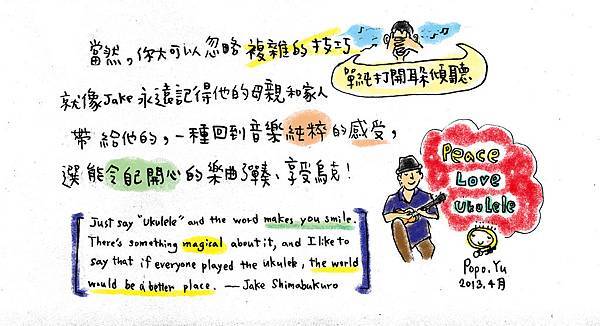 當然，你大可以忽略複雜的技巧
單純打開耳朵傾聽
就像Jake永遠記得他的母親和家人
帶給他的，一種回到音樂純粹的感受，
選能令自己開心的樂曲彈奏、享受烏克！
Peace
Love
Ukulele
Just say "Ukulele" and the word makes you smile.
There's something magical about it, and I like to
say that if everyone played the ukulele, the world
would be a better place. — Jake Shimabukuro
Popo.Yu
2013.4月